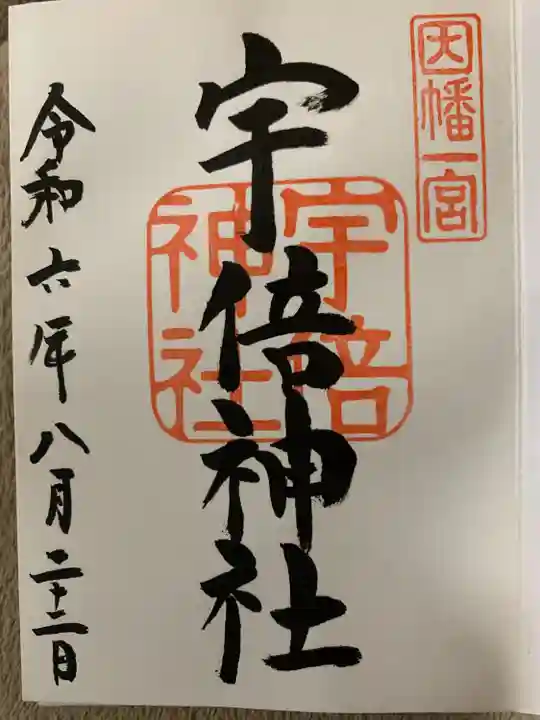 因幡一宮
宇倍神社
宇倍神社
令和六年八月二十二日